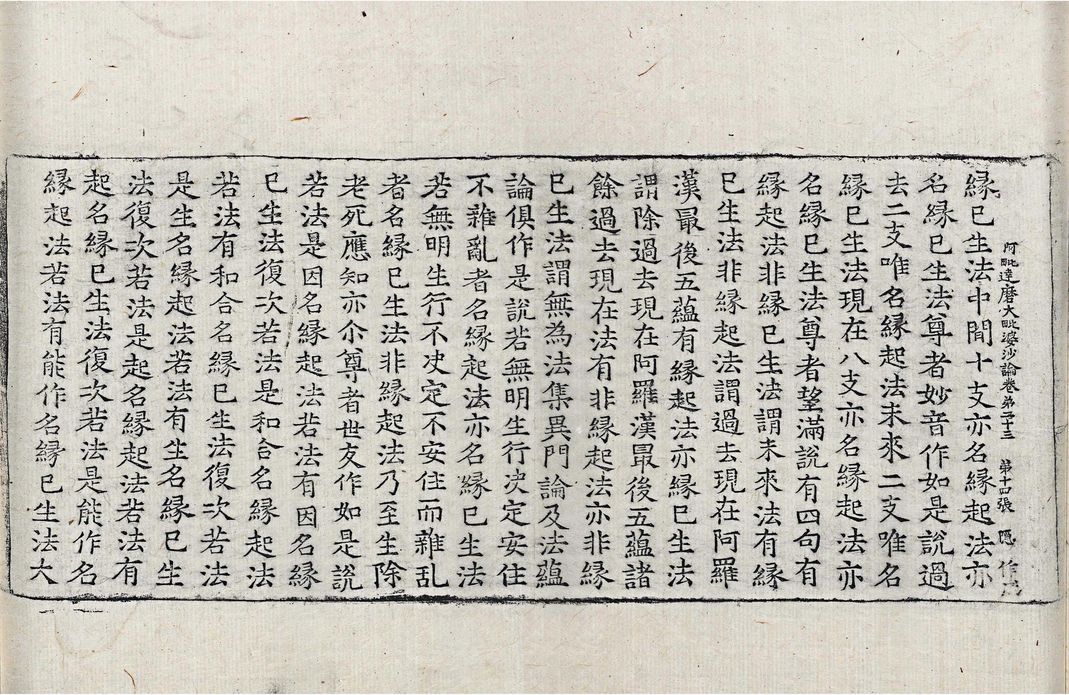 阿毗達磨大毗婆沙論卷第二十三 第十四張 隱
縁已生法中間十支亦名縁起法亦
名縁已生法尊者妙音作如是說過
去二支唯名縁起法未來二支唯名
縁已生法現在八支亦名縁起法亦
名縁已生法尊者望滿說有四句有
縁起法非縁已生法謂未來法有縁
已生法非縁起法謂過去現在阿羅
漢㝡後五蘊有縁起法亦縁已生法
謂除過去現在阿羅漢㝡後五蘊諸
餘過去現在法有非縁起法亦非縁
已生法謂無為法集異門論及法蘊
論俱作是說若無明生行决定安住
不雜亂者名縁起法亦名縁已生法
若無明生行不决定不安住而雜乱
者名縁已生法非縁起法乃至生除
老死應知亦尒尊者世友作如是說
若法是因名縁起法若法有因名縁
已生法復次若法是和合名縁起法
若法有和合名縁已生法復次若法
是生名縁起法若法有生名縁已生
法復次若法是起名縁起法若法有
起名縁已生法復次若法是能作名
縁起法若法有能作名縁已生法大